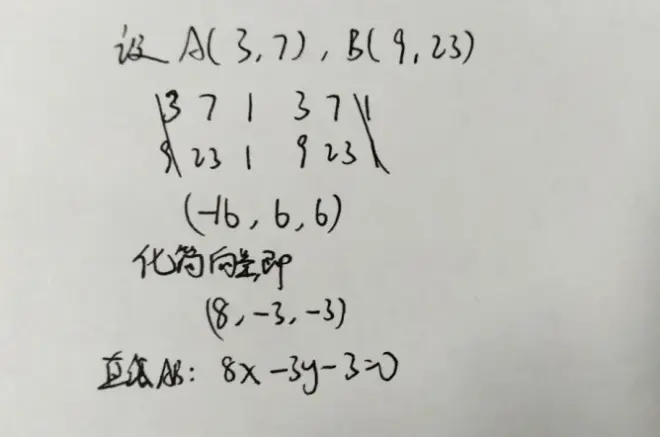 设 A(3,7), B(9,23)
3 7 1 3 7 1
9 23 1 9 23 1
(-16, 6, 6)
化简向量,即
(8, -3, -3)
直线AB: 8x-3y-3=0